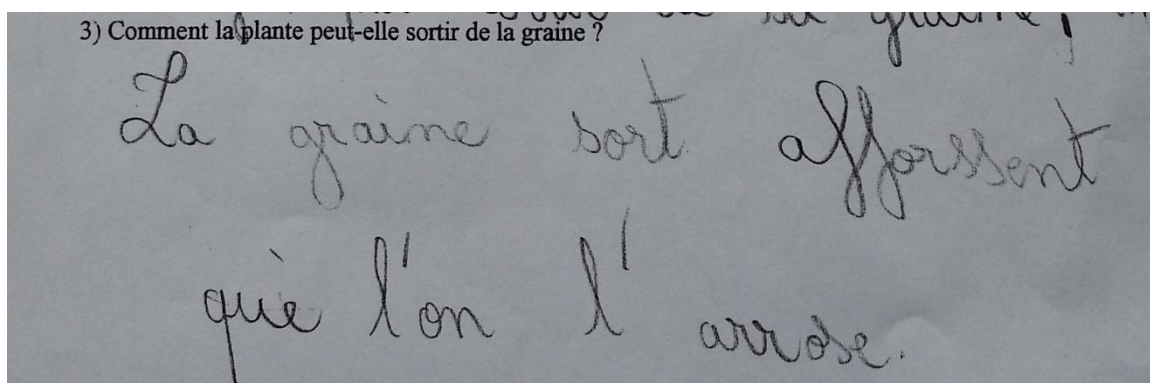 3) Comment la plante peut-elle sortir de la graine ?
La graine sort afforssent
què l'on l'arrose.